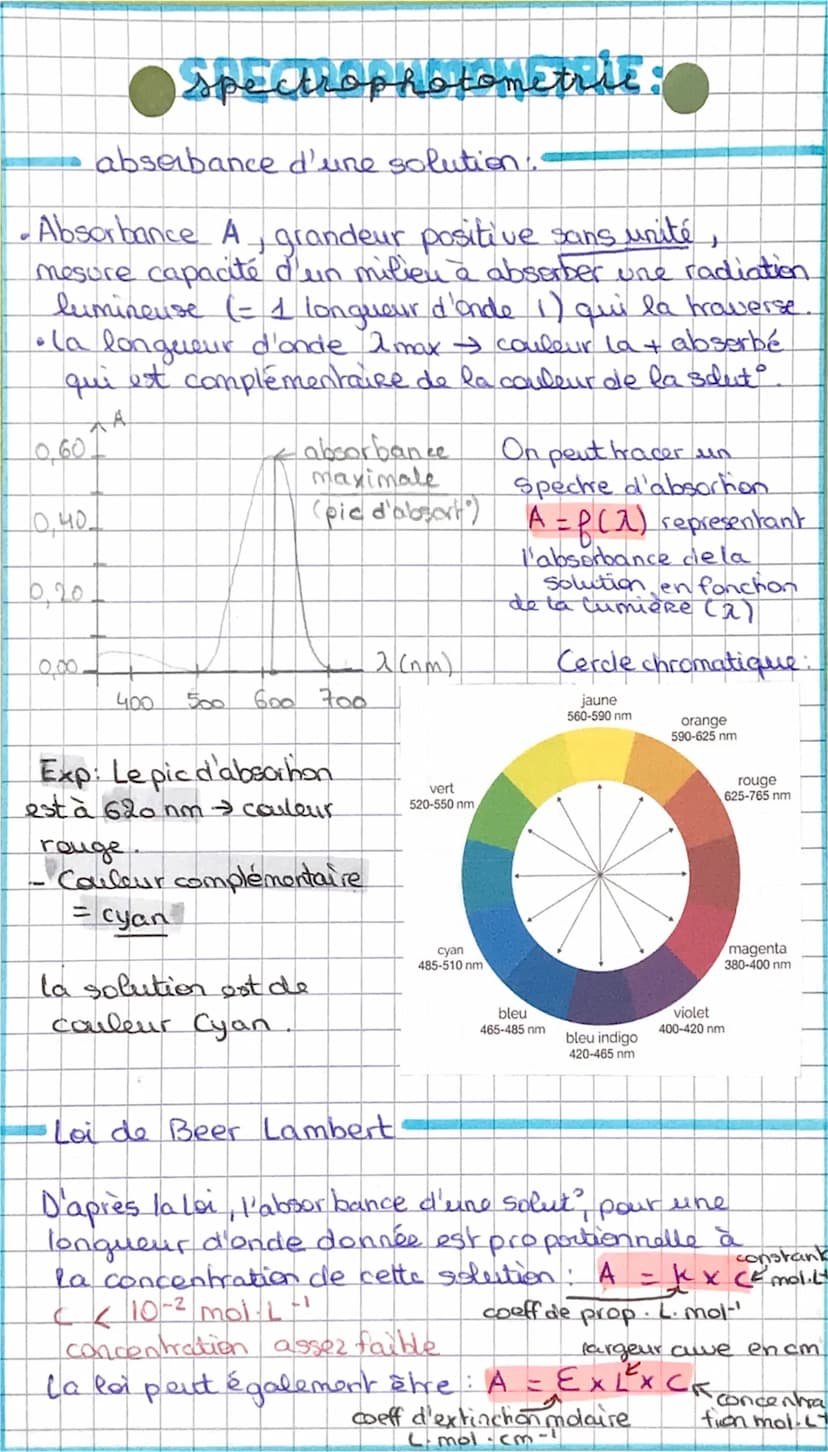 SPECTROPHOTOMETRIE:
spectrophotometrie :
absorbance d'une solution :
• Absorbance A, grandeur positive sans unité,
mesure capacité d'un milieu à absorber une radiation
lumineuse (= 1 longueur d'onde 1) qui la traverse.
• la longueur d'onde λmax → couleur la + absorbé
qui est complémentaire de la couleur de la solut°.
A
0,60
0,40
0,20
0,00
400 500 600 700
λ (nm)
absorbance
maximale
(pic d'absort°)
On peut tracer un
spectre d'absorbtion
A = f(λ) representant
l'absorbance de la
solution en fonction
de la lumière (λ)
Cercle chromatique :
jaune
560-590 nm
orange
590-625 nm
rouge
625-765 nm
magenta
380-400 nm
violet
400-420 nm
bleu indigo
420-465 nm
bleu
465-485 nm
cyan
485-510 nm
vert
520-550 nm
Exp: Le pic d'absorbtion
est à 620 nm → couleur
rouge.
- Couleur complémentaire
= cyan
la solution est de
couleur Cyan.
Loi de Beer Lambert
D'après la loi, l'absorbance d'une solut°, pour une
longueur d'onde donnée est proportionnelle à
la concentration de cette solution : A = k x C
constant
mol.L
C < 10⁻² mol.L⁻¹
coeff de prop. L.mol⁻¹
concentration assez faible
largeur cuve en cm
La loi peut également être : A = Ɛ x L x C
concentra
tion mol.L
coeff d'extinction molaire
L.mol.cm⁻¹